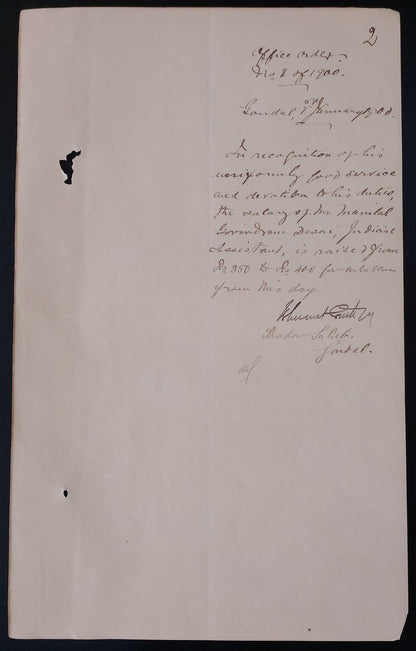 2
Office order
No. 2 of 1900.
Gondal, 1st January 1900.
In recognition of his
uniformly good service
and devotion to his duties,
the salary of Mr Manilal
Govindram Desai, Judicial
Assistant, is raised from
Rs 350 to Rs 400 per mensem
from this day.
Thakor Saheb,
Gondal.